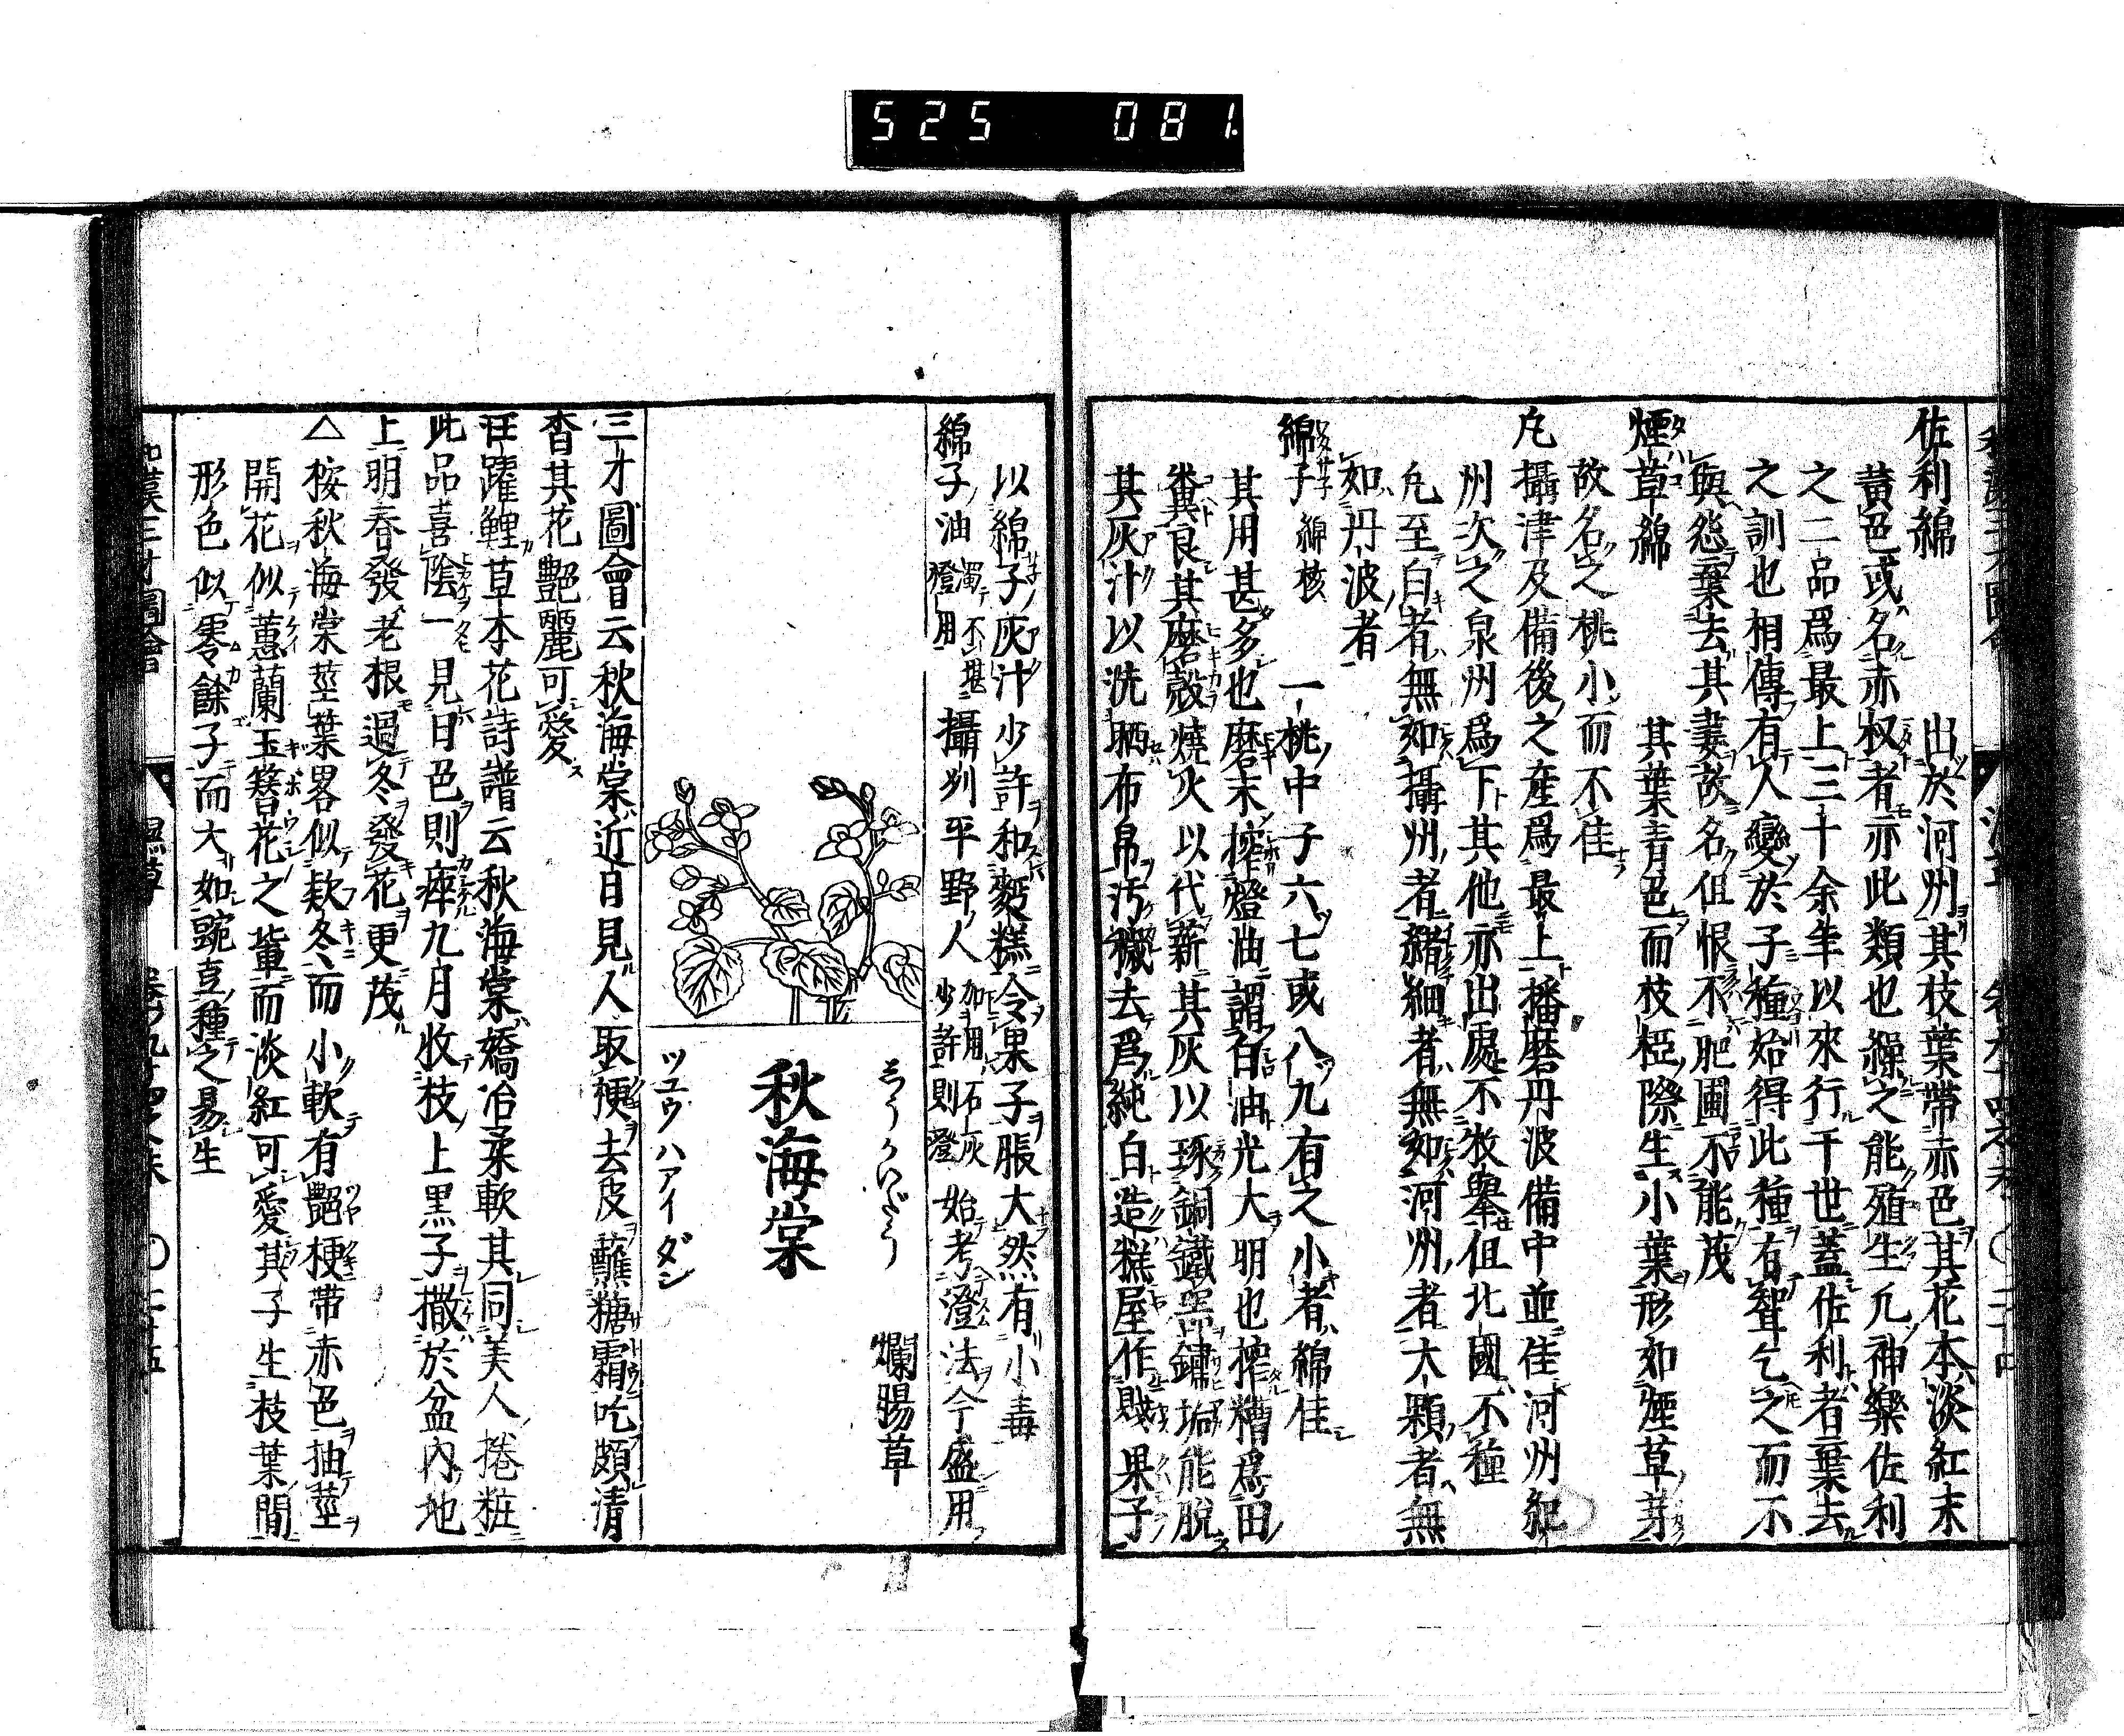 525 081
佐利綿 出於河州其枝葉帶赤色其花本淡紅末
黄色或名赤杈者亦此類也繰之能殖生凢神樂佐利
之二品爲最上三十余年以來行于世蓋佐利者葉去
之訓也相傳有人孌於子種始得此種右聟乞之而不
與怨棄去其妻故名但恨不肥圃不能茂
煙草綿 其葉青色而枝椏際生小葉形如煙草芽
故名之桃小而不佳
凡攝津及備後之産爲最上播磨丹波備中並佳河州紀
州次之泉州爲下其他亦出處不枚舉但北國不種
凢至白者無如攝州者緒細者無如河州者大顆者無
如丹波者
綿子 綿核 一桃中子六七或八九有之小者綿佳
其用甚多也磨末搾燈油謂白油光大明也搾糟爲田
糞良其磨殼燒火以代薪其灰以琢銅鐵噐鏽垢能脱
其灰汁以洗晒布帛汚穢去爲純白造糕屋作賎果子
以綿子灰汁少許和麪糕令果子脹大然有小毒
綿子油 濁不堪燈用 攝州平野人 加用石灰少許則澄 始考澄法今盛用
しうかいだう
秋海棠
ツユウハアイダン
爛腸草
三才圖會云秋海棠近日見人取梗去皮蘸糖霜吃頗清
香其花艷麗可愛
汪躍鯉草本花詩譜云秋海棠嬌冶柔軟其同美人捲粧
此品喜陰一見日色則瘁九月收枝上黒子撒於盆内地
上明春發老根過冬發花更茂
△桉秋海棠莖葉畧似欵冬而小軟有艷梗帶赤色抽莖
開花似蕙蘭玉簪花之軰而淡紅可愛其子生枝葉間
形色似零餘子而大如豌豆種之易生
和漢三才圖會 濕草 卷之九十四之末 〇二十五